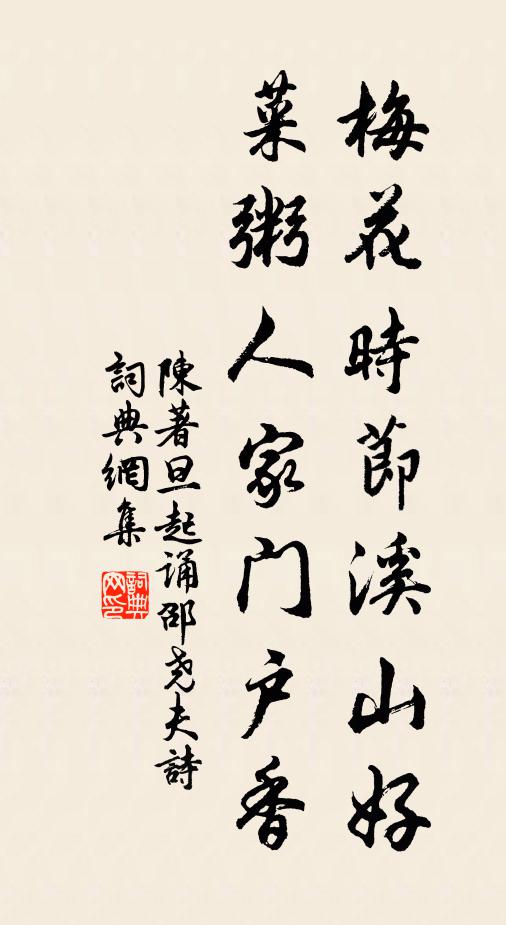 梅花時節溪山好
菜粥人家門户香
陳著旦起诵邵尧夫詩
詞典網集
詞典
网印